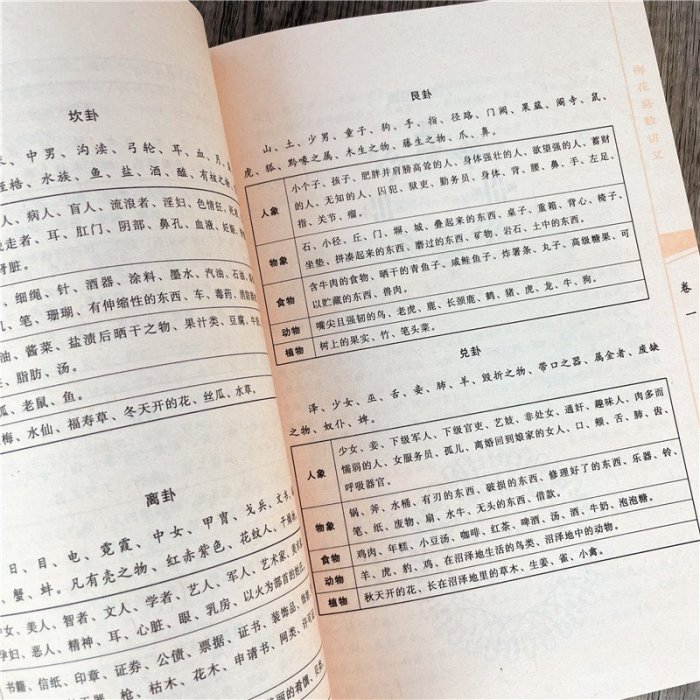 坎卦
中男、沟渎、弓轮、耳、血、月、
桎梏、水族、鱼、盐、酒、醢、有核之物、
人、病人、盲人、流浪者、淫妇、色情狂、
逃走者、耳、肛门、阴部、鼻孔、血液、
肾脏。
、细绳、针、酒器、涂料、墨水、汽油、石油、
几、笔、珊瑚、有伸缩性的东西、车、毒药、消防
油、酱菜、盐渍后晒干之物、果汁类、豆腐、
、脂肪、汤。
狐、老鼠、鱼。
梅、水仙、福寿草、冬天开的花、丝瓜、水草。
离卦
日、目、电、霓霞、中女、甲胄、戈兵、文书、
、蟹、蚌。凡有壳之物、红赤紫色、花纹人、
中女、美人、智者、文人、学者、艺人、军人、艺术家、
孕妇、恶人、精神、耳、心脏、眼、乳房、以火为部首的姓氏。
书籍、信纸、印章、证券、公债、票据、证书、装饰品、
、天器、枪、枯木、花木、申请书、
艮卦
山、土、少男、童子、狗、手、指、径路、门阙、果蓏、阍寺、鼠、
虎、狐、黔喙之属、木生之物、藤生之物、爪、鼻。
人象
小个子、孩子、肥胖并肩膀高耸的人、身体强壮的人、欲望强的人、蓄财
的人、无知的人、囚犯、狱吏、勤务员、身体、背、腰、鼻、手、左足、
指、关节、瘤。
物象
石、小径、丘、门、塀、城、叠起来的东西、桌子、重箱、背心、椅子、
坐垫、拼凑起来的东西、磨过的东西、矿物、岩石、土中的东西。
食物
含牛肉的食物、晒干的青鱼子、咸鲑鱼子、炸薯条、丸子、高级糖果、可
以贮藏的东西、兽肉。
动物
嘴尖且强韧的鸟、老虎、鹿、长颈鹿、鹤、猪、虎、龙、牛、狗。
植物
树上的果实、竹、笔头菜。
兑卦
泽、少女、巫、舌、妾、肺、羊、毁折之物、带口之器、属金者、废缺
之物、奴仆、婢。
人象
少女、妾、下级军人、下级官吏、艺妓、非处女、通奸、趣味人、肉多而
懦弱的人、女服务员、孤儿、离婚回到娘家的女人、口、颊、舌、肺、齿、
呼吸器官。
物象
锅、斧、水桶、有刃的东西、破损的东西、修理好了的东西、乐器、铃、
笔、纸、废物、扇、水牛、无头的东西、借款。
食物
鸡肉、年糕、小豆汤、咖啡、红茶、啤酒、汤、酒、牛奶、泡泡糖。
动物
羊、虎、豹、鸡、在沼泽地生活的鸟类、沼泽地中的动物。
植物
秋天开的花、长在沼泽地里的草木、生姜、雀、小禽。
梅花易数讲义
卷一